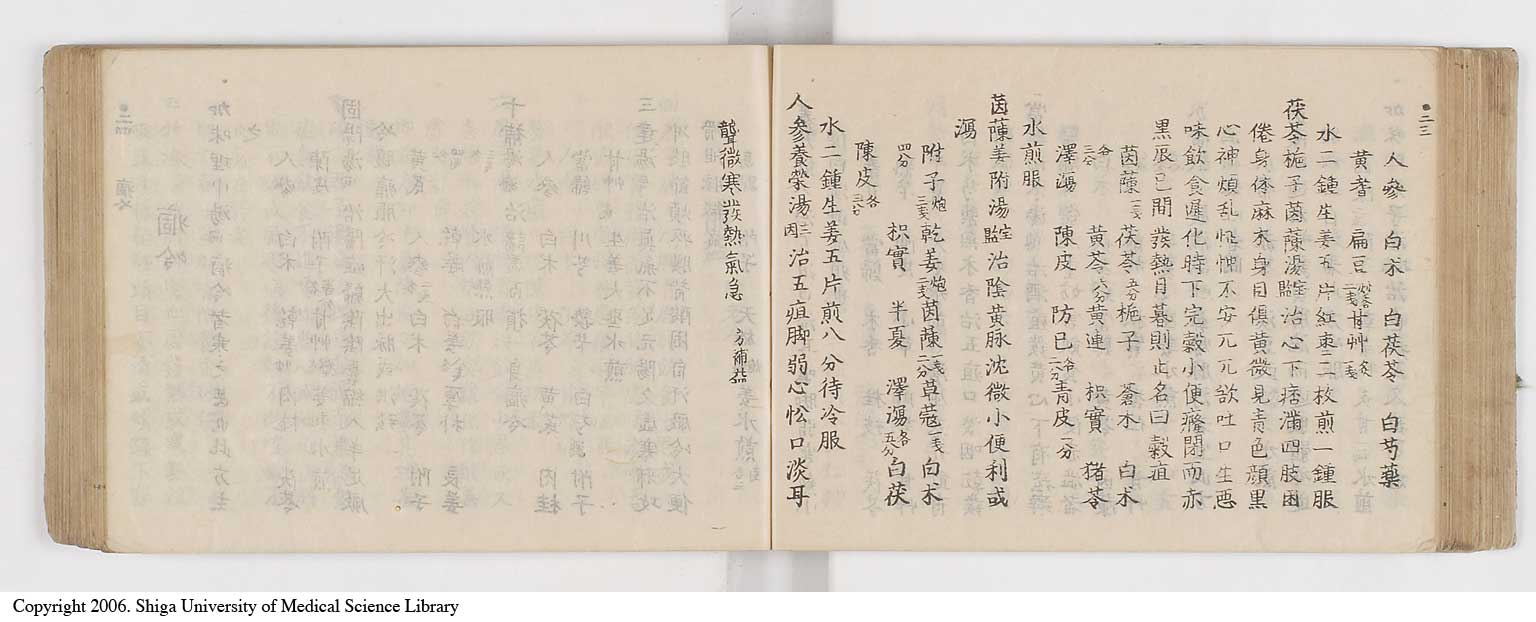 二三
人參 白朮 白茯苓 白芍藥
黄耆 扁豆 甘艸
水二鍾生姜五片紅枣二枚煎一鍾服
茯苓梔子茵蔯湯 治心下痞滿四肢困
倦身体麻木身目俱黄微見青色顔黒
心神煩乱怔忡不安兀兀欲吐口生悪
味飲食遅化時下完穀小便癃閉而赤
黒辰巳間發熱日暮則止名曰穀疸
茵蔯 茯苓 梔子 蒼朮 白朮
黄芩 黄連 枳實 猪苓
澤瀉 陳皮 防已 青皮
水煎服
茵蔯姜附湯 治陰黄脉沈微小便利或
瀉
附子炮 乾姜炮 茵蔯 草蔲 白朮
四分 枳實 半夏 澤瀉 白茯
陳皮
水二鍾生姜五片煎八分待冷服
人參養榮湯 治五疸脚弱心忪口淡耳
聾微寒發熱氣急
Copyright 2006. Shiga University of Medical Science Library